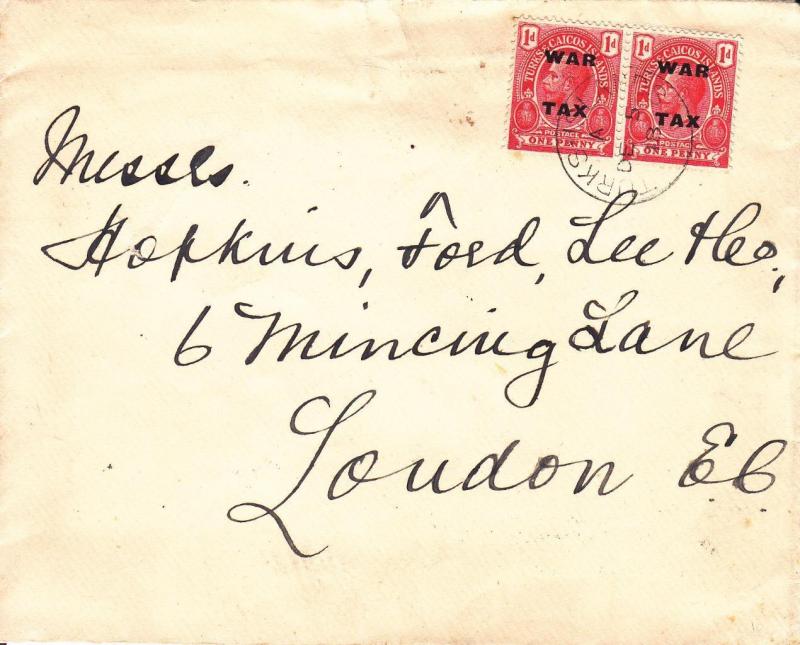 1d 1d 1d 1d
TURKS & CAICOS ISLANDS TURKS & CAICOS ISLANDS
WAR WAR
TAX TAX
POSTAGE POSTAGE
ONE PENNY ONE PENNY
TURKS
Messrs.
Hopkins, Ford, Lee & Co,
6 Mincing Lane
London EC